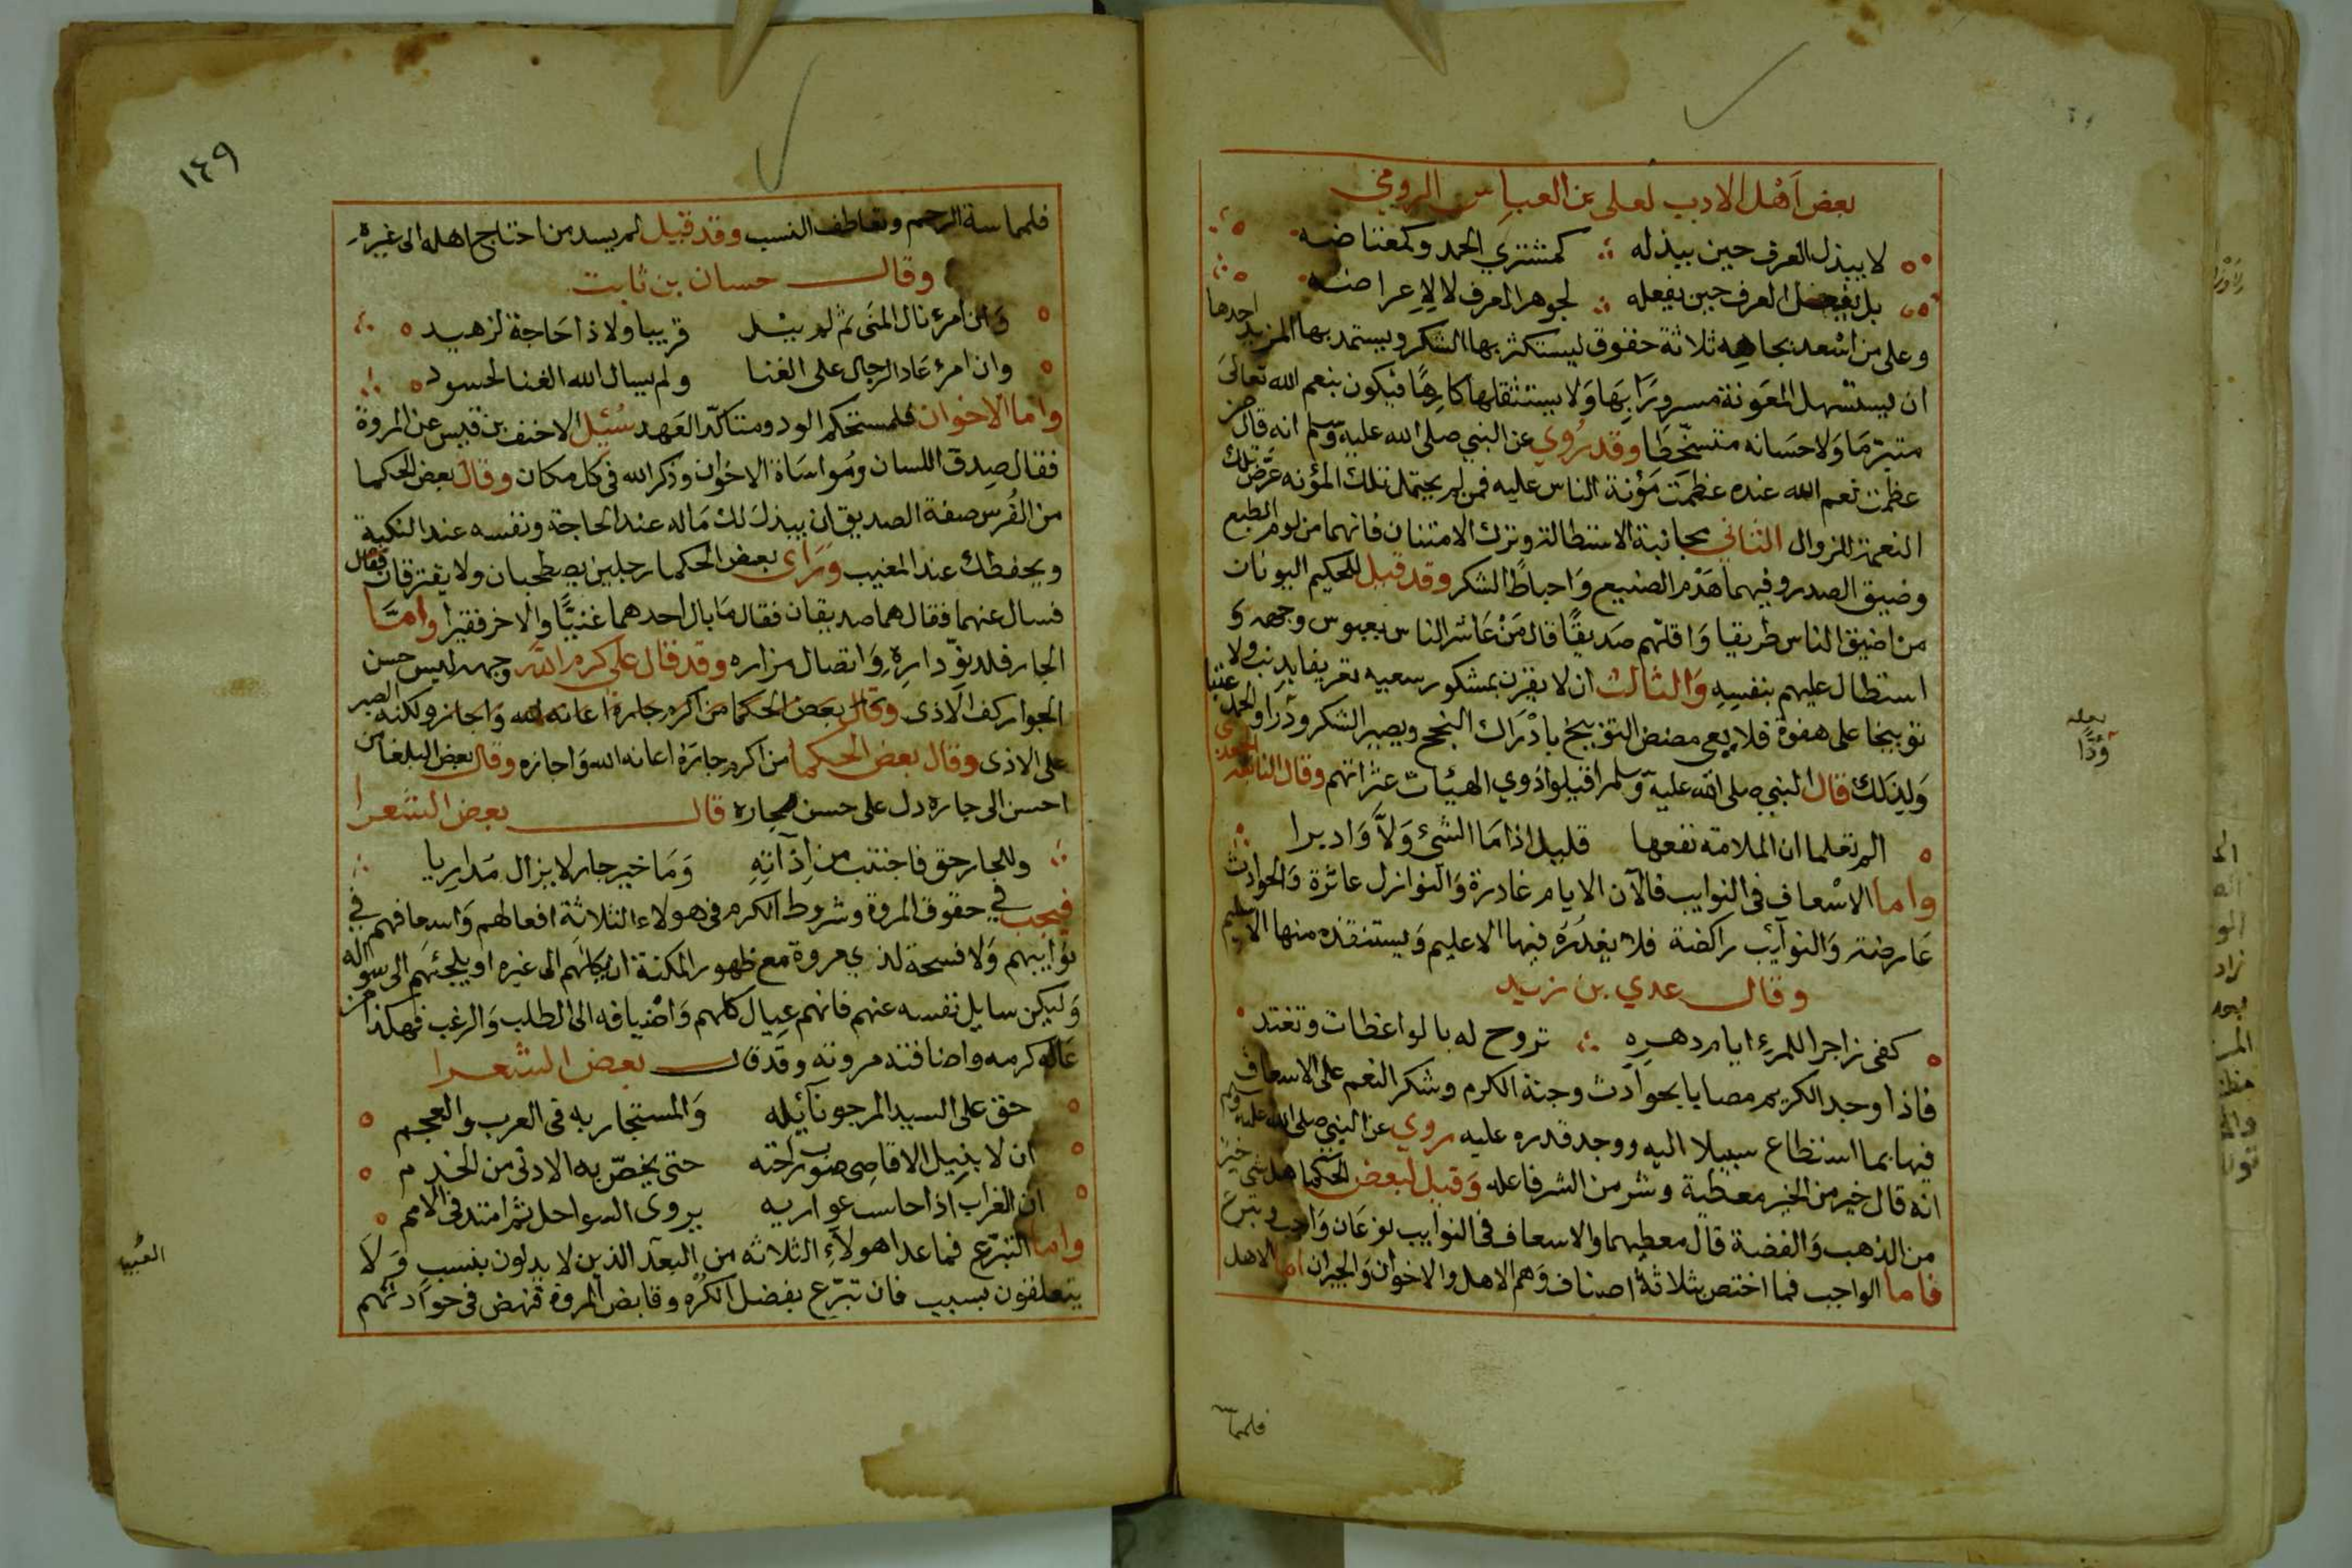 بعض اهل الادب لعلي بن العباس الرومي
لا يبذل العرف حين يبذله ∴ كمشتري الحمد وكمعتاضه
بل يفعل العرف حين يفعله ∴ لجوهر العرف لا لاعراضه
وعلى من اسعد بجاهه ثلاثة حقوق ليستكثر بها الشكر ويستمد بها المزيد احدها
ان يستسهل المعونة مسرورًا بها ولا يستثقلها كارهًا فيكون بنعم الله تعالى
متبرما ولاحسانه متسخطا وقد روي عن النبي صلى الله عليه وسلم انه قال من
عظمت نعم الله عنده عظمت مؤنة الناس عليه فمن لم يحتمل تلك المؤنه عرض تلك
النعمة للزوال الثاني مجانبة الاستطالة وترك الامتنان فانهما من لوم الطبع
وضيق الصدر وفيهما هدم الصنيع واحباط الشكر وقد قيل للحكيم اليونان
من اضيق الناس طريقا واقلهم صديقًا قال من عاشر الناس بعبوس وجهه و
استطال عليهم بنفسه والثالث ان لا يقرن بمشكور سعيه تقريعا بذنب ولا
توبيخا على هفوة فلا يفي مضض التوبيخ بادراك النجح ويصير الشكر وذرا والحمد عتبا
ولذلك قال النبي صلى الله عليه وسلم اقيلوا ذوي الهيئات عثراتهم وقال النابغة الجعدي
الم تعلما ان الملامة نفعها قليل اذا ما الشئ ولَّا وادبرا
واما الاسعاف في النوايب فالآن الايام غادرة والنوازل عائرة والحوادث
عارضة والنوآئب راكضة فلا يغدره فيها الا عليم ويستنقذه منها الا سليم
وقال عدي بن زيد
كفى زاجرا للمرء ايام دهره ∴ تروح له بالواعظات وتغتد
فاذا وجد الكريم مصابا بحوادث وجنة الكرم وشكر النعم على الاسعاف
فيها بما استطاع سبيلا اليه ووجد قدره عليه روي عن النبي صلى الله عليه وسلم
انه قال خير من الخير معطية وشر من الشر فاعله وقيل لبعض الحكما هل شي خير
من الذهب والفضة قال معطيهما والاسعاف في النوايب نوعان واجب وتبرع
فاما الواجب فما اختص بثلاثة اصناف وهم الاهل والاخوان والجيران اما الاهل
فلمما
لعله
ودًّا
١٤٩
فلمماسة الرحم وتعاطف النسب وقد قيل لم يسد من احتاج اهله الى غيره
وقال حسان بن ثابت
وان امرء نال المنى ثم لم ينل قريبا ولا ذا حاجة لزهيد
وان امرء عاد الرجال على الغنا ولم يسال الله الغنا لحسود
واما الاخوان فلمستحكم الود ومتاكد العهد سُئِل الاحنف بن قيس عن المروة
فقال صدق اللسان ومواساة الاخوان وذكر الله في كل مكان وقال بعض الحكما
من الفُرس صفة الصديق ان يبذل لك ماله عند الحاجة ونفسه عند النكبة
ويحفظك عند المغيب ورأى بعض الحكما رجلين يصطحبان ولا يفترقان فقال
فسال عنهما فقال هما صديقان فقال ما بال احدهما غنيًّا والاخر فقيرا وامَّا
الجار فلدنو داره واتصال مزاره وقد قال علي كرم الله وجهه ليس حسن
الجوار كف الاذى وقال بعض الحكما من اكرم جاره اعانه الله واجازه ولكنه الصبر
على الاذى وقال بعض الحكما من اكرم جاره اعانه الله واجازه وقال بعض البلغا من
احسن الى جاره دل على حسن نجاره قال بعض الشعرا
وللجار حق فاجتنب من اذآته وما خير جار لا يزال مداريا
فيجب في حقوق المروة وشروط الكرم في هولاء الثلاثة افعالهم واسعافهم في
نوايبهم ولا فسحة لذي مروة مع ظهور المكنة ان يكلهم الى غيره او يلجئهم الى سواله
وليكن سايل نفسه عنهم فانهم عيال كلهم واضيافه الى الطلب والرغب فهكذا من
عاله كرمه واضافته مروته وقد قال بعض الشعرا
حق على السيد المرجو نآئيله والمستجار به في العرب والعجم
ان لا ينيل الاقاصي صوب راحته حتى يخصّ به الادنى من الخدم
ان الفرات اذا جاست غواربه يروى السواحل ثم امتد في الامم
واما التبرّع فما عدا هولآء الثلاثه من البعد الذين لا يدلون بنسب ولا
يتعلقون بسبب فان تبرّع بفضل الكره وقابض المروة فنهض في حوادثهم